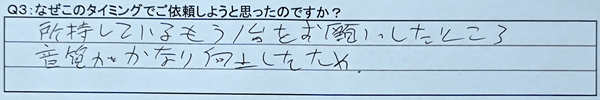 Q3:なぜこのタイミングでご依頼しようと思ったのですか？
所持しているもう1台をお願いしたところ
音質がかなり向上したため.